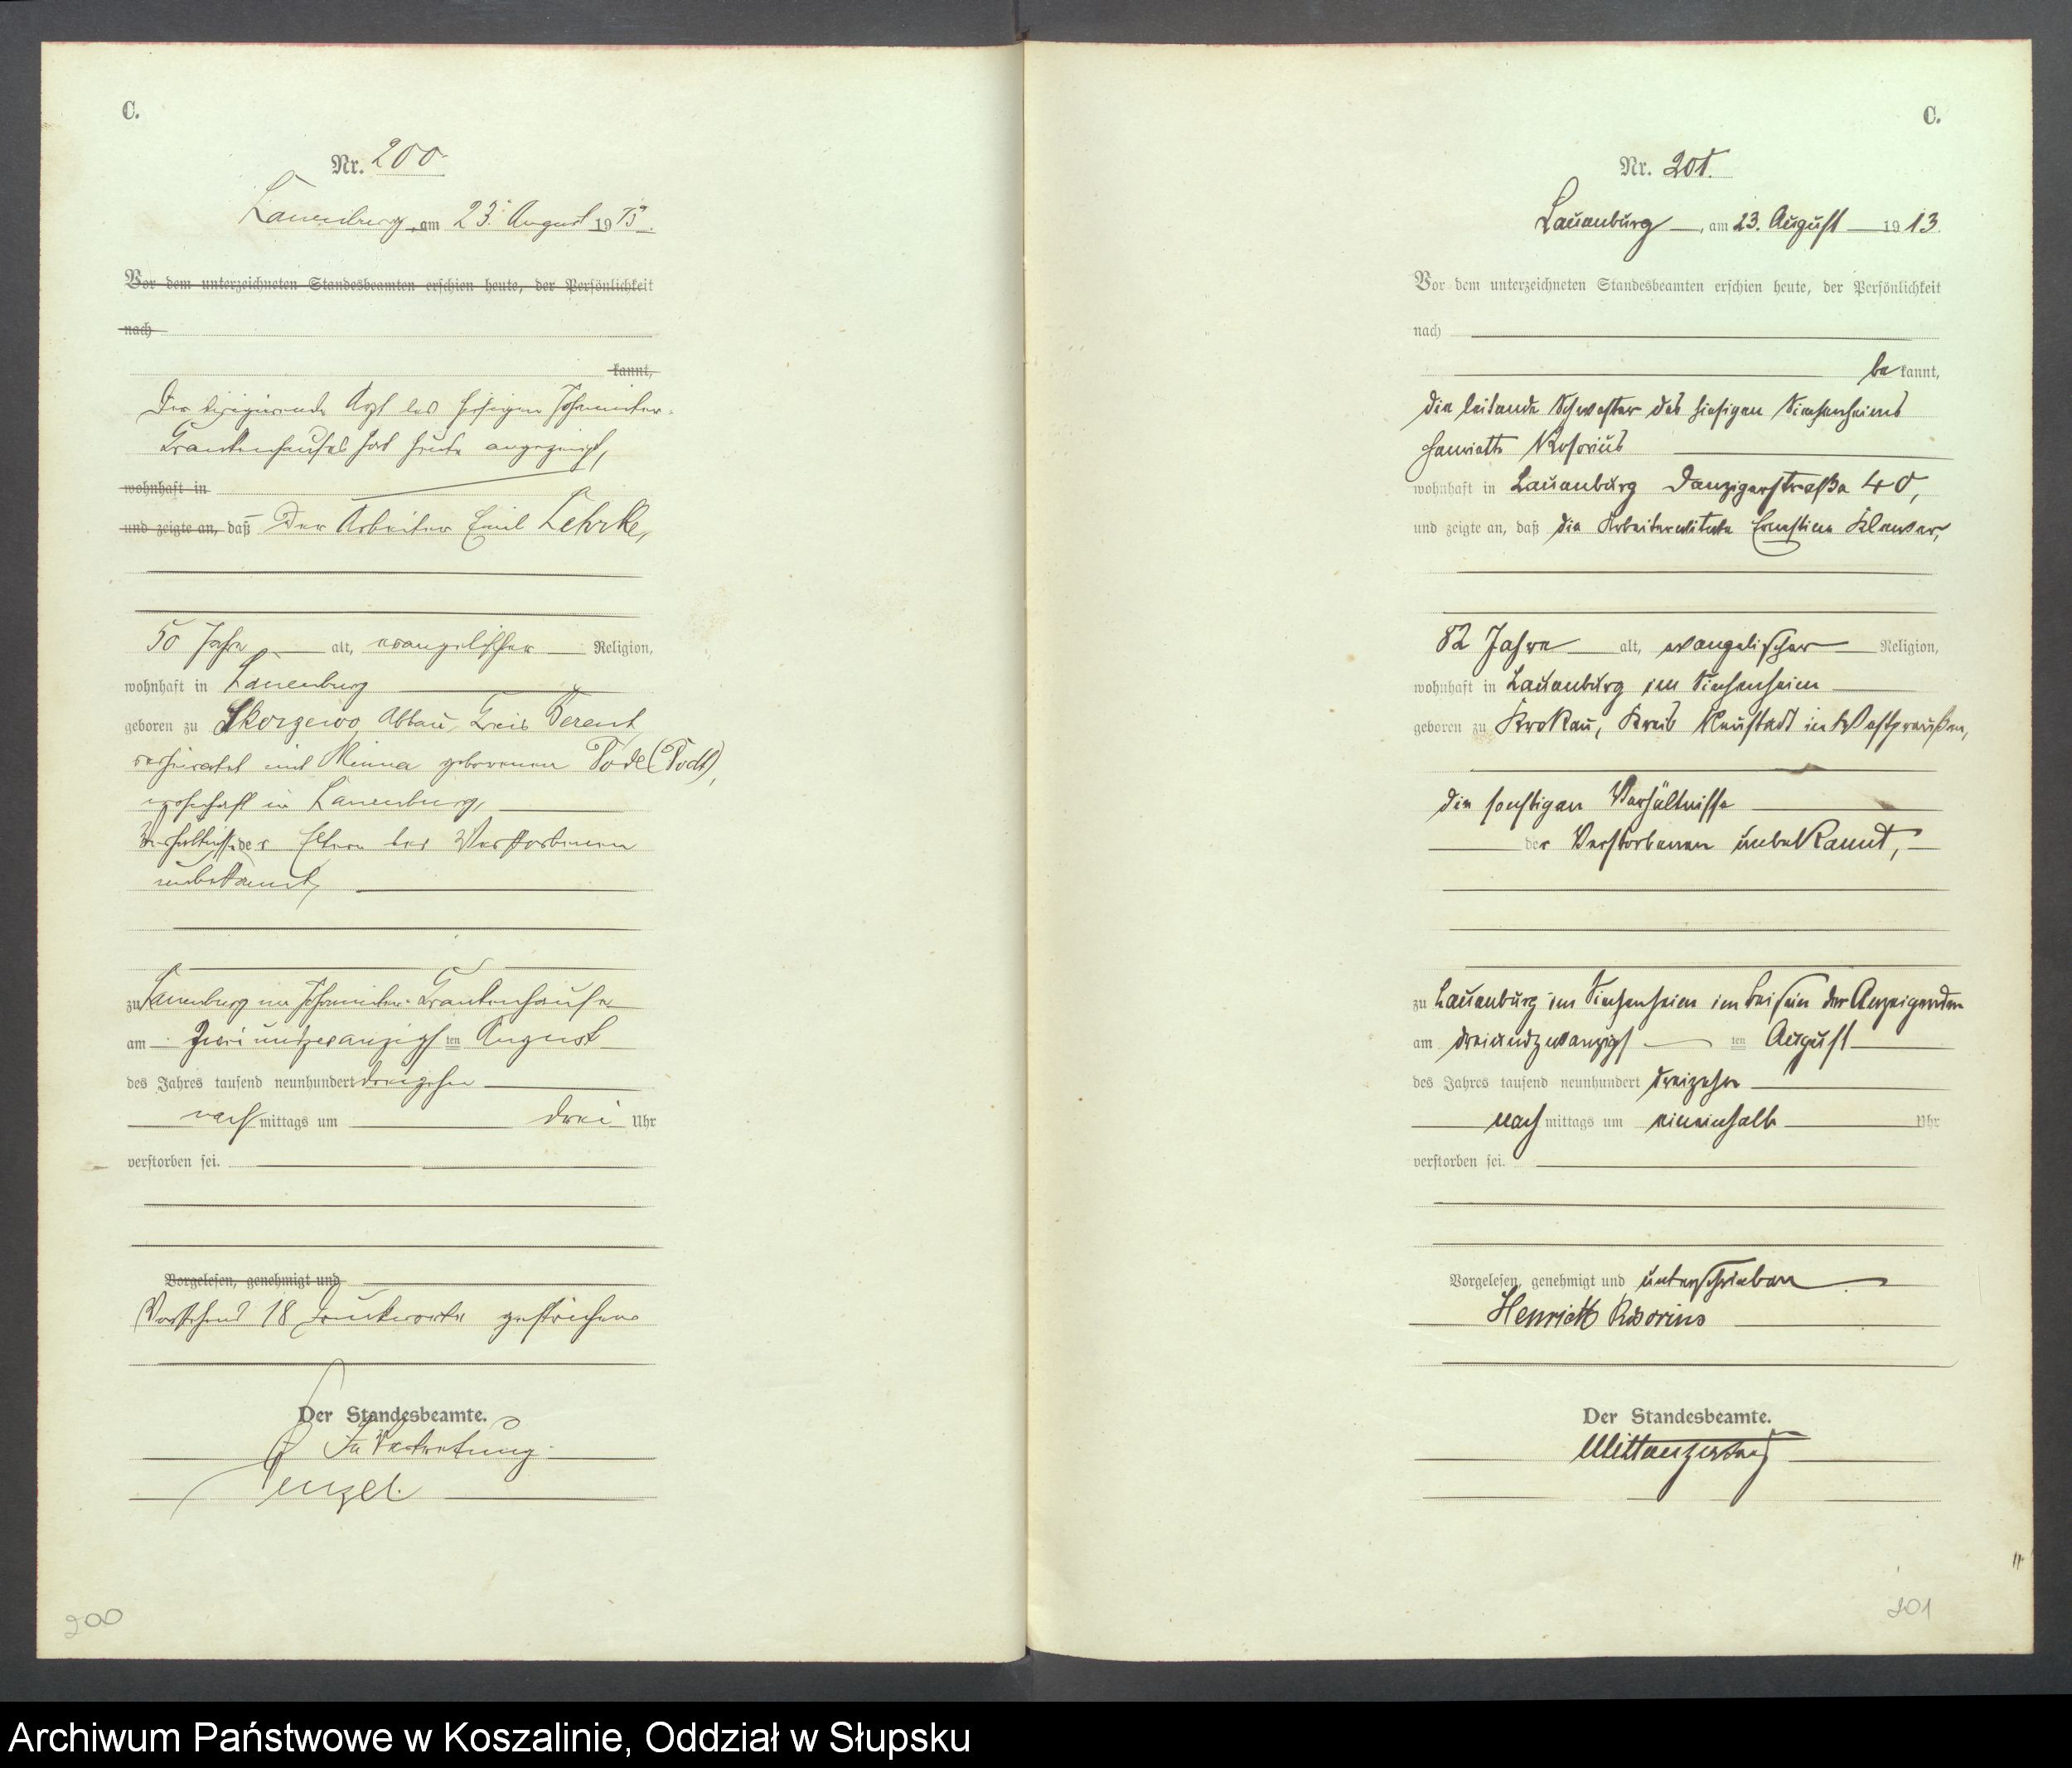 C.
Nr. 200
Lauenburg, am 23. August 1913.
Vor dem unterzeichneten Standesbeamten erschien heute, der Persönlichkeit
nach
kannt,
Der dirigirende Arzt des hiesigen Johanniter-
Krankenhauses hat heute angezeigt,
wohnhaft in
und zeigte an, daß Der Arbeiter Emil Lehrke,
50 Jahre alt, evangelischer Religion,
wohnhaft in Lauenburg
geboren zu Skorzewo Abbau, Kreis Berent,
verheiratet mit Minna geborenen Tode (Todt),
wohnhaft in Lauenburg,
Verhältnisse der Eltern des Verstorbenen
unbekannt,
zu Lauenburg im Johanniter-Krankenhause
am zweiundzwanzigsten August
des Jahres tausend neunhundert dreizehn
nachmittags um drei Uhr
verstorben sei.
Vorgelesen, genehmigt und
Vorstehend 18 Druckworte gestrichen
Der Standesbeamte.
In Vertretung.
200
C.
Nr. 201.
Lauenburg, am 23. August 1913.
Vor dem unterzeichneten Standesbeamten erschien heute, der Persönlichkeit
nach
bekannt,
die leitende Schwester des hiesigen Siechenheims
Henriette
wohnhaft in Lauenburg Danzigerstraße 40,
und zeigte an, daß die Arbeiterwitwe Ernstine Klawer,
82 Jahre alt, evangelischer Religion,
wohnhaft in Lauenburg im Siechenheim
geboren zu Krokau, Kreis Neustadt in Westpreußen,
die sonstigen Verhältnisse
der Verstorbenen unbekannt,
zu Lauenburg im Siechenheim im Beisein der Anzeigenden
am dreiundzwanzigsten August
des Jahres tausend neunhundert dreizehn
nachmittags um eineinhalb Uhr
verstorben sei.
Vorgelesen, genehmigt und unterschrieben
Henriette
Der Standesbeamte.
201
Archiwum Państwowe w Koszalinie, Oddział w Słupsku